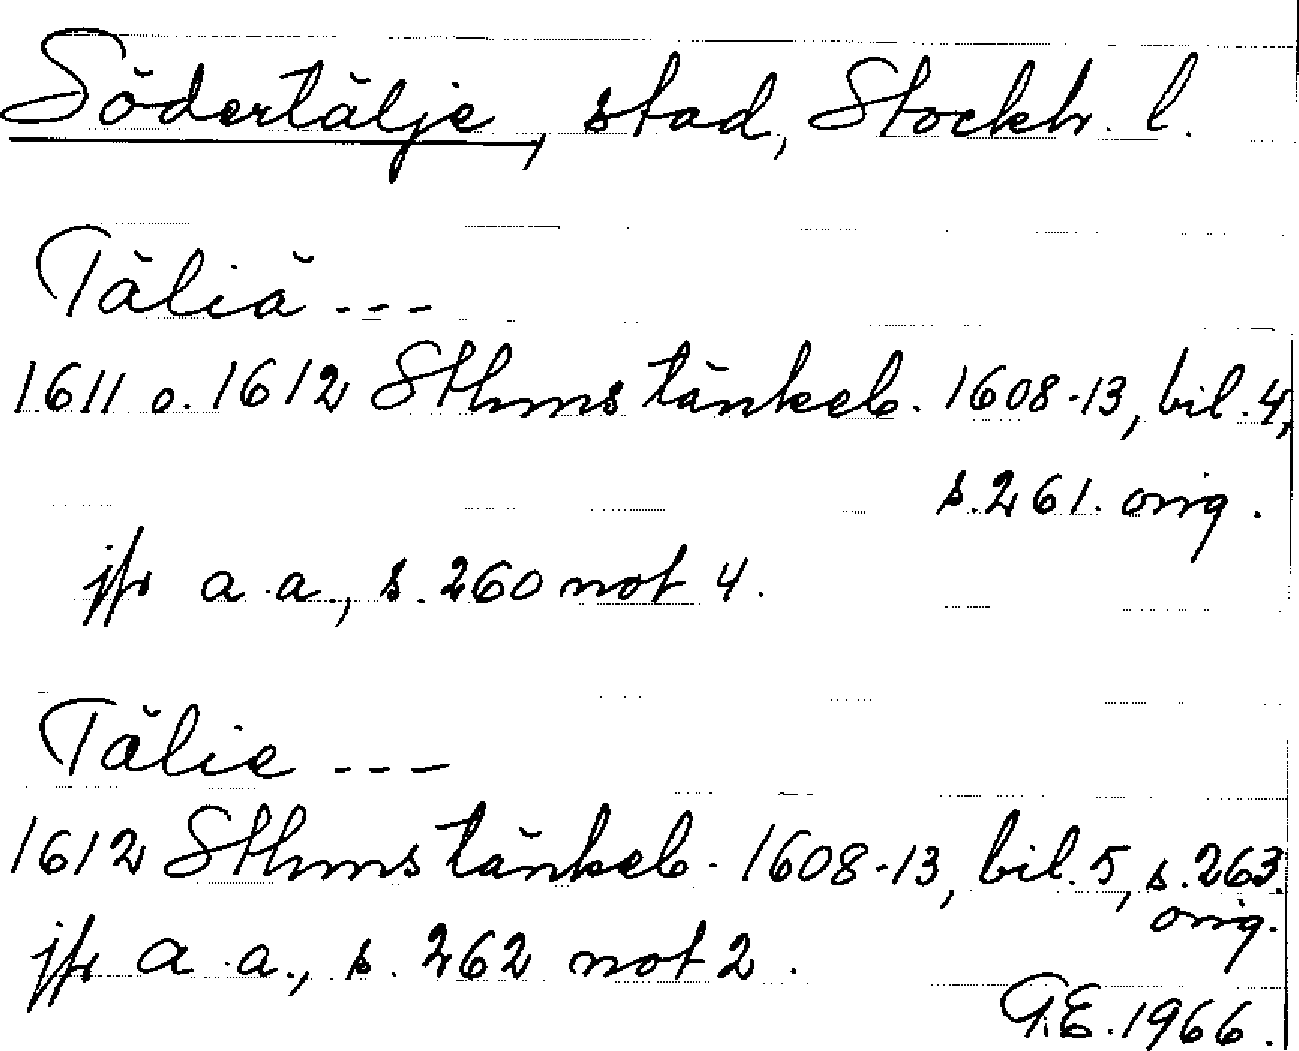 Södertälje, stad, Stockh. l.
Täliä ---
1611 o. 1612 Sthms tänkeb. 1608-13, bil. 4,
s. 261. orig.
jfr a.a., s. 260 not 4.
Tälie ---
1612 Sthms tänkeb. 1608-13, bil. 5, s. 263.
orig.
jfr a.a., s. 262 not 2.
G.E. 1966.